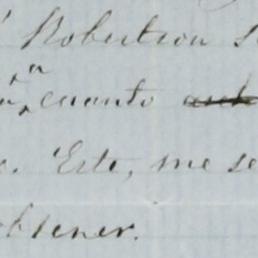 Robertson
cuanto
Este, me se
obtener.